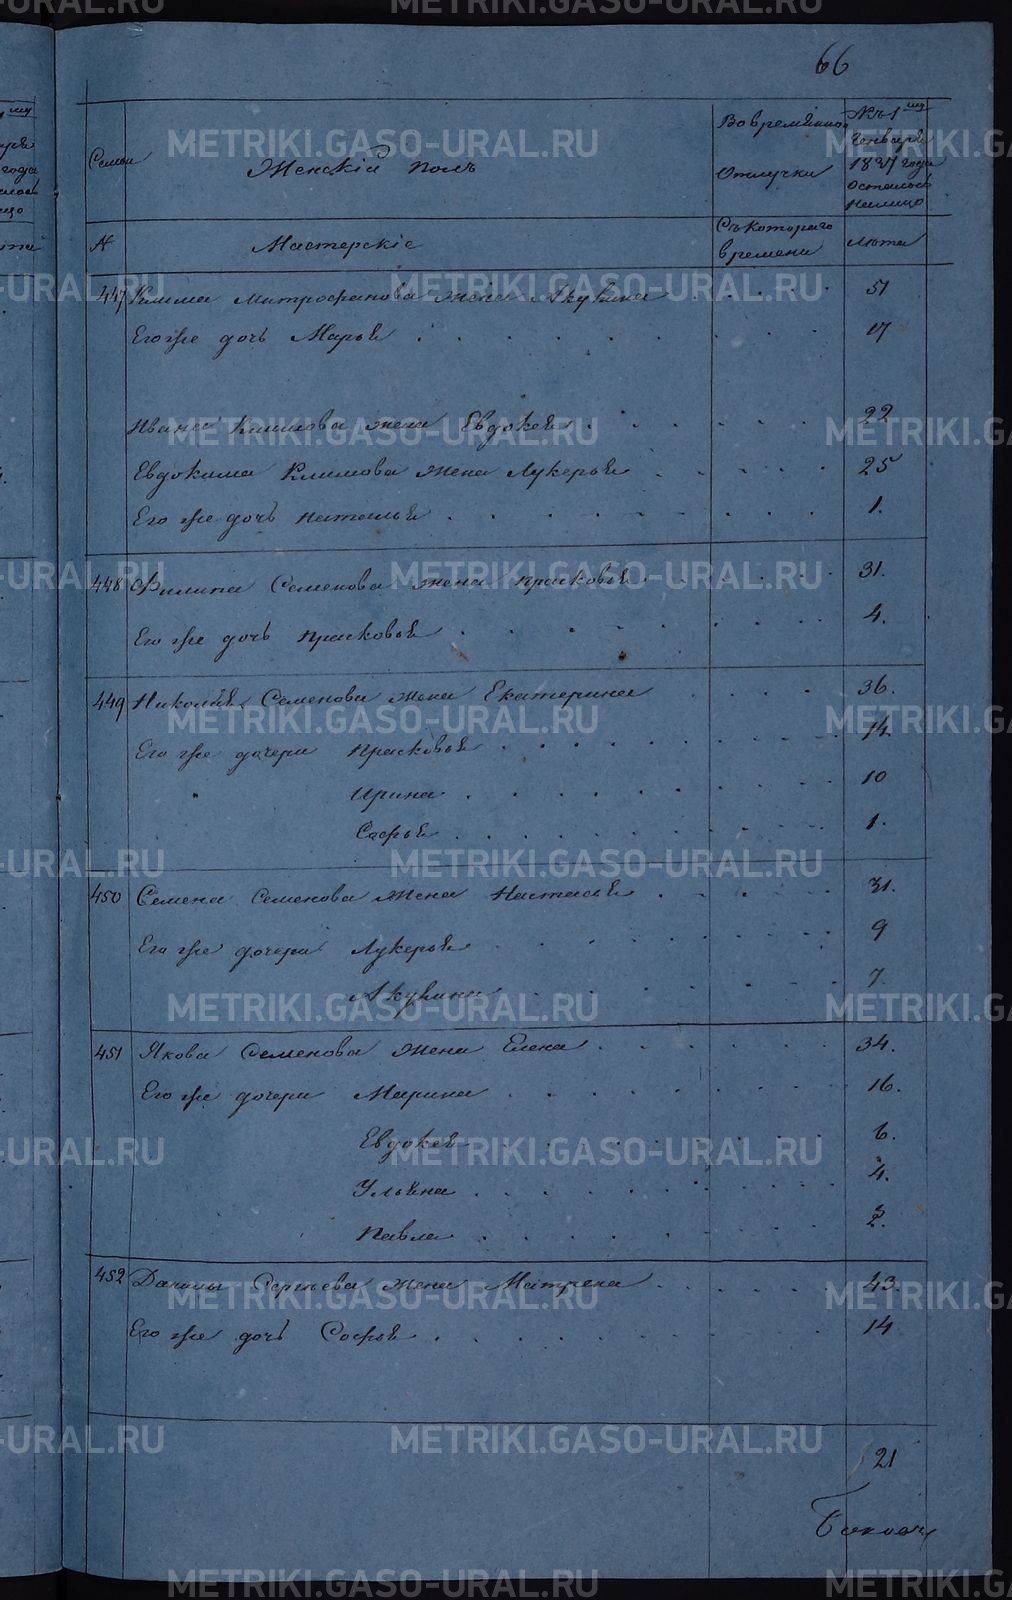 66
Семьи
Женскій полъ
Во временной
Отлучки
Къ 1му
Генваря
1837 года
осталось
налицо
№
Мастерскіе
Съ котораго
времени
лѣта
447 Клима Митрофанова жена Акулина 51
Его же дочь Марья 17
Ивана Климова жена Евдокея 22
Евдокима Климова жена Лукерья 25
Его же дочь Наталья 1.
448 Филипа Семенова жена Прасковья 31.
Его же дочь Прасковья 4.
449 Николая Семенова жена Екатерина 36.
Его же дочери Прасковья 14.
Ирина 10
Софья 1.
450 Семена Семенова жена Настасья 31.
Его же дочери Лукерья 9
Акулина 7.
451 Якова Семенова жена Елена 34.
Его же дочери Марина 16.
Евдокея 6.
Ульяна 4.
Павла 2.
452 Данилы Сергѣева жена Матрена 43.
Его же дочь Софья 14
21
METRIKI.GASO-URAL.RU